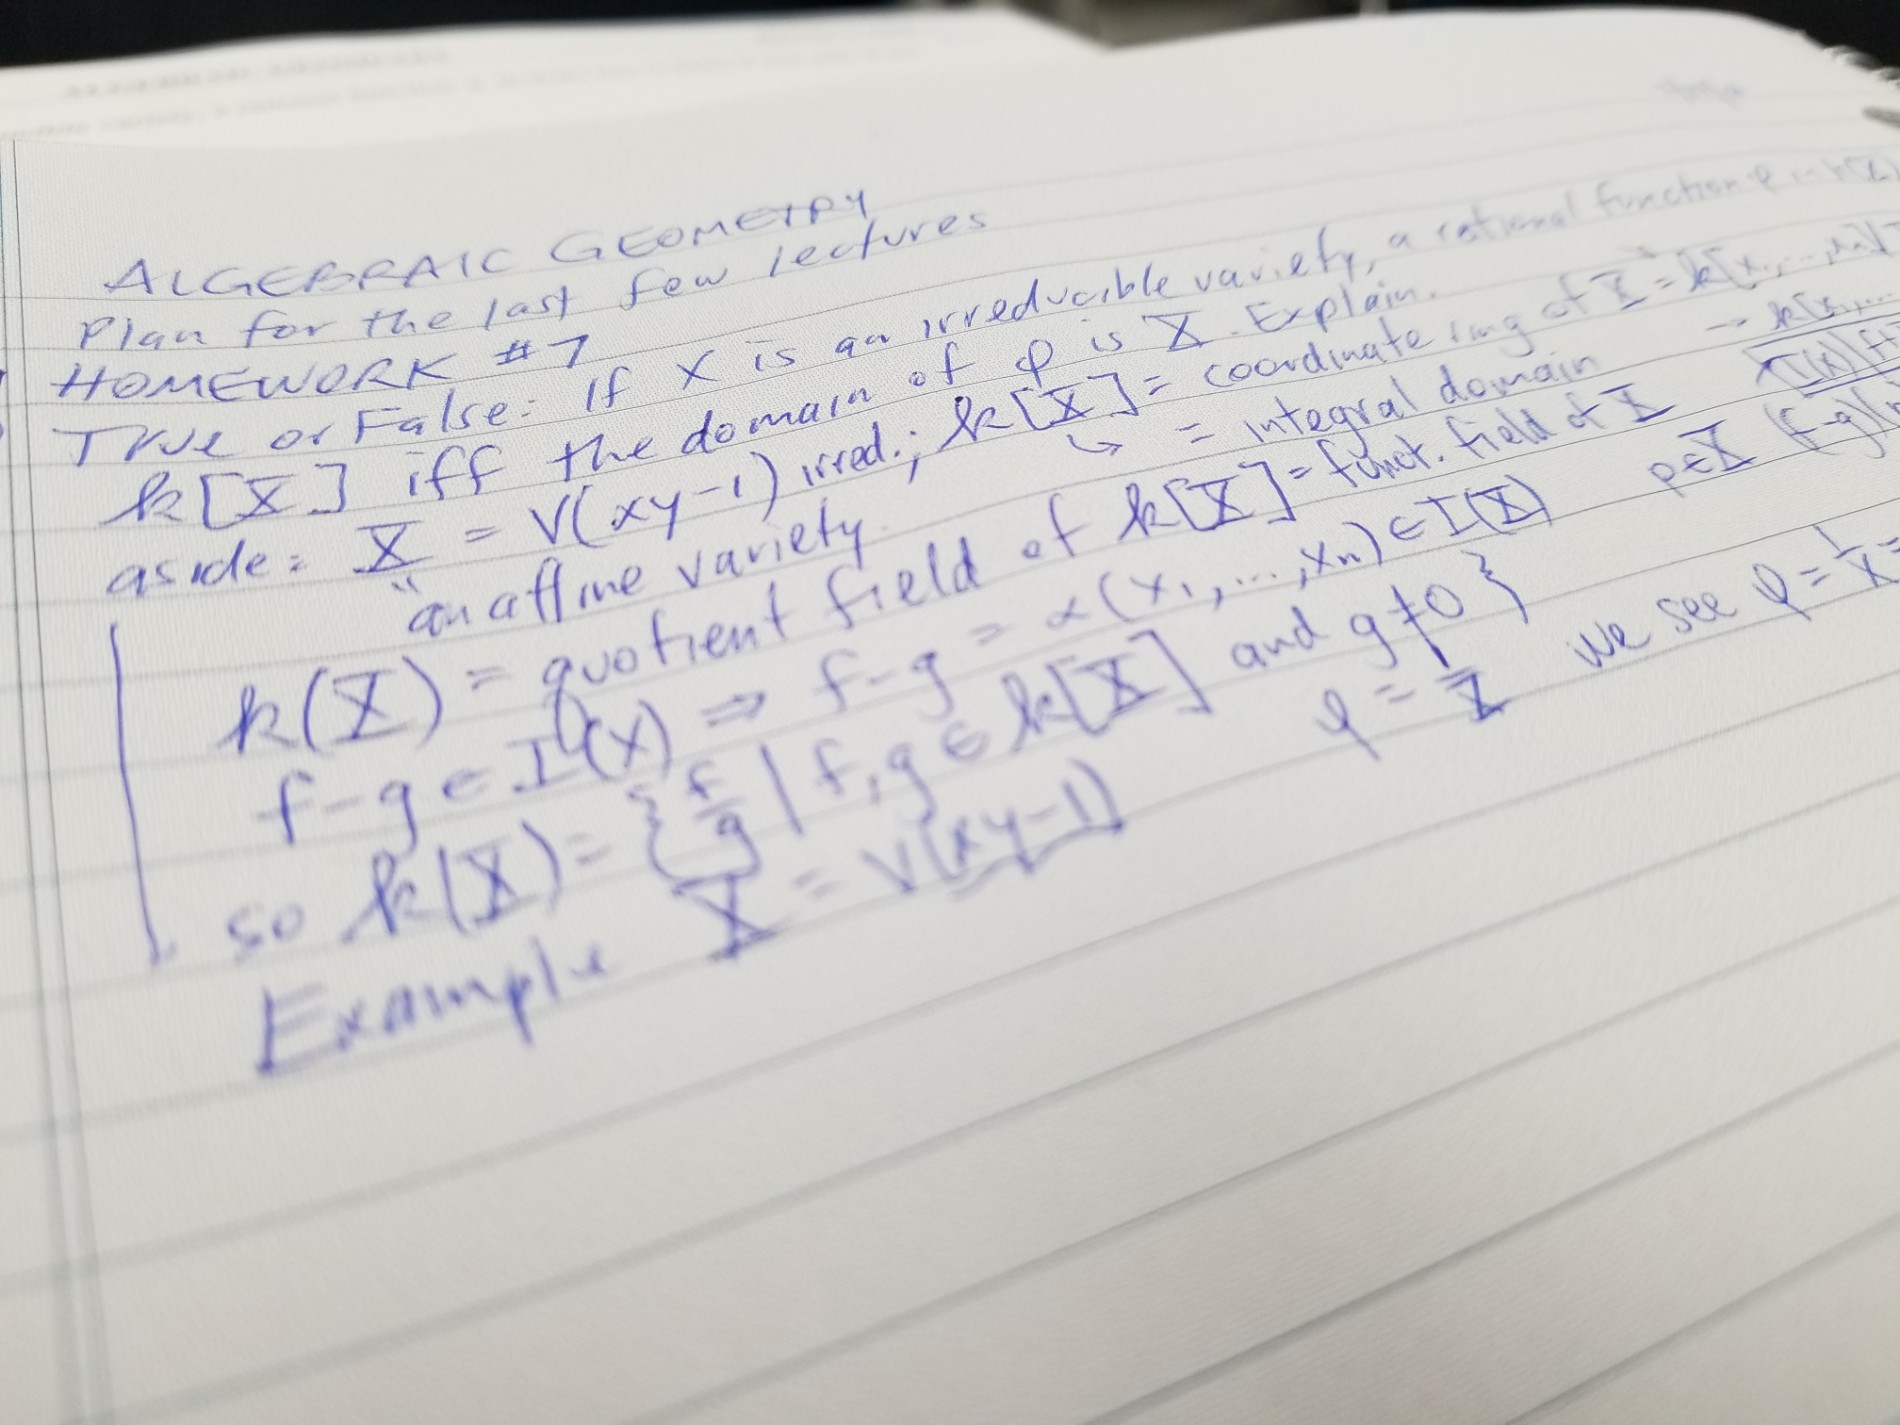 ALGEBRAIC GEOMETRY
Plan for the last few lectures
HOMEWORK #7
True or False: If X is an irreducible variety, a rational function φ in k(X)
k[X] iff the domain of φ is X. Explain.
aside: X = V(xy-1) irred.; k[X] = coordinate ring of X = k[x1,...,xn]/
"an affine variety ↳ = integral domain → k[x1,...
k(X) = quotient field of k[X] = funct. field of X
f-g ∈ I(X) ⇒ f-g = α(x1,...,xn) ∈ I(X) p∈X (f-g)(
so k(X) = {f/g | f,g ∈ k[X] and g≠0}
Example X = V(xy-1) φ = 1/X we see φ = 1/x =